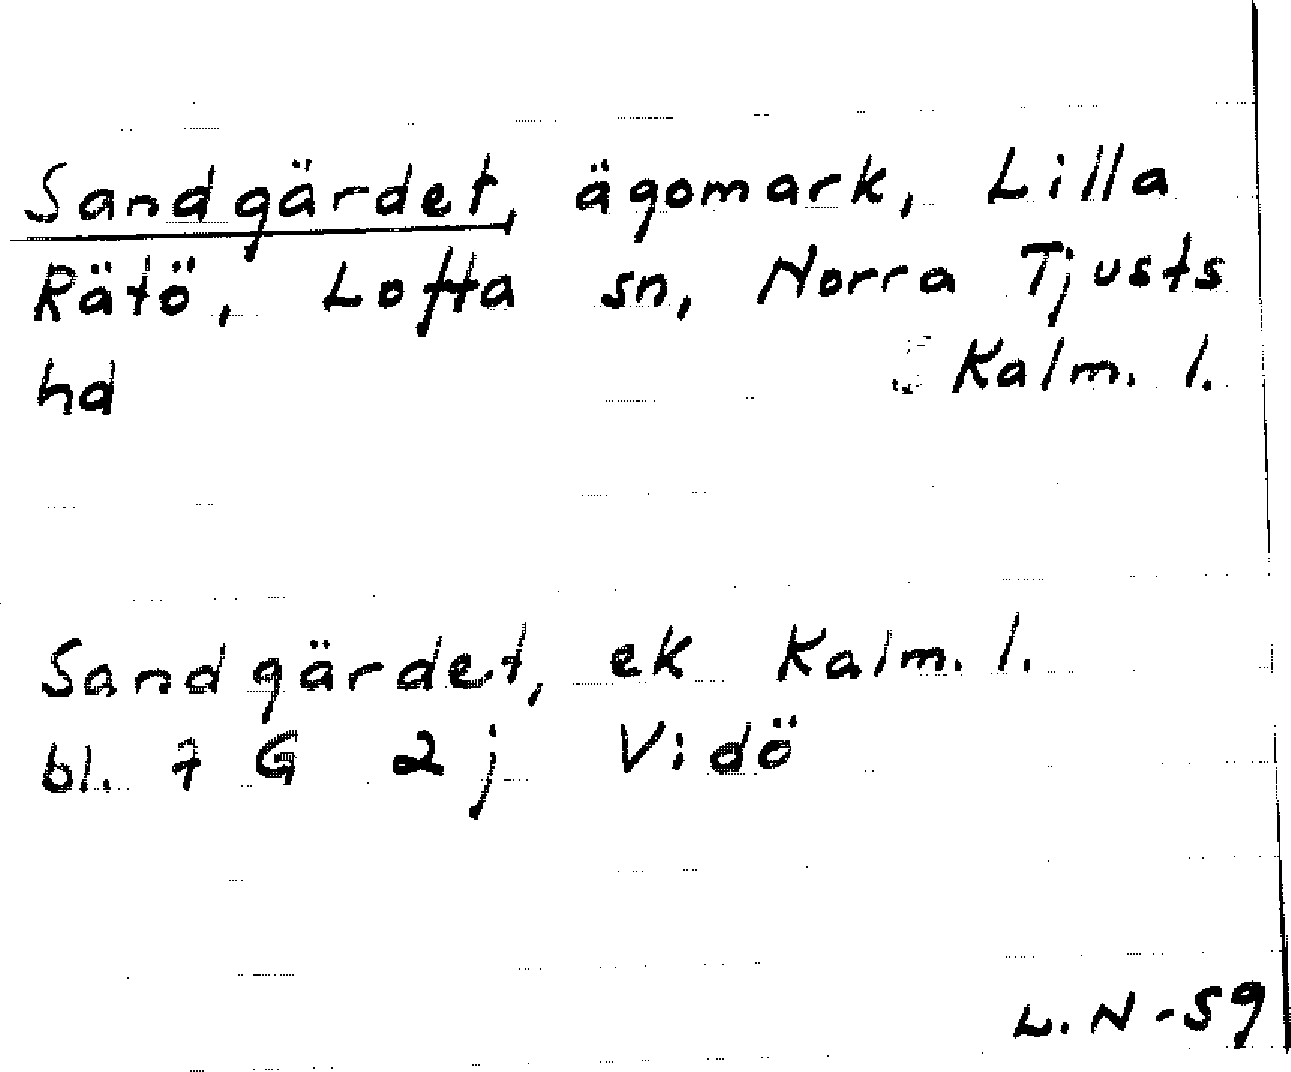 Sandgärdet, ägomark, Lilla
Rätö, Lofta sn, Norra Tjusts
hd Kalm. l.
Sandgärdet, ek Kalm. l.
bl. 7 G 2 j Vidö
L. N - 59